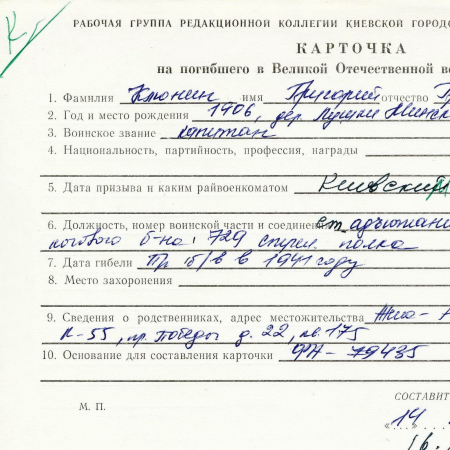 РАБОЧАЯ ГРУППА РЕДАКЦИОННОЙ КОЛЛЕГИИ КИЕВСКОЙ ГОРОДС
КАРТОЧКА
на погибшего в Великой Отечественной во
1. Фамилия Клюнин имя Григорий отчество Гр
2. Год и место рождения 1906, дер.
3. Воинское звание капитан
4. Национальность, партийность, профессия, награды
5. Дата призыва и каким райвоенкоматом Киевский
6. Должность, номер воинской части и соединения ст. адъютант
б-на 729 стрел. полка
7. Дата гибели пр. б/в в 1941 году
8. Место захоронения
9. Сведения о родственниках, адрес местожительства Жена -
К-55, пр. Победы д. 22, кв. 175
10. Основание для составления карточки ФН - 79435
СОСТАВИТ
М. П.
«14